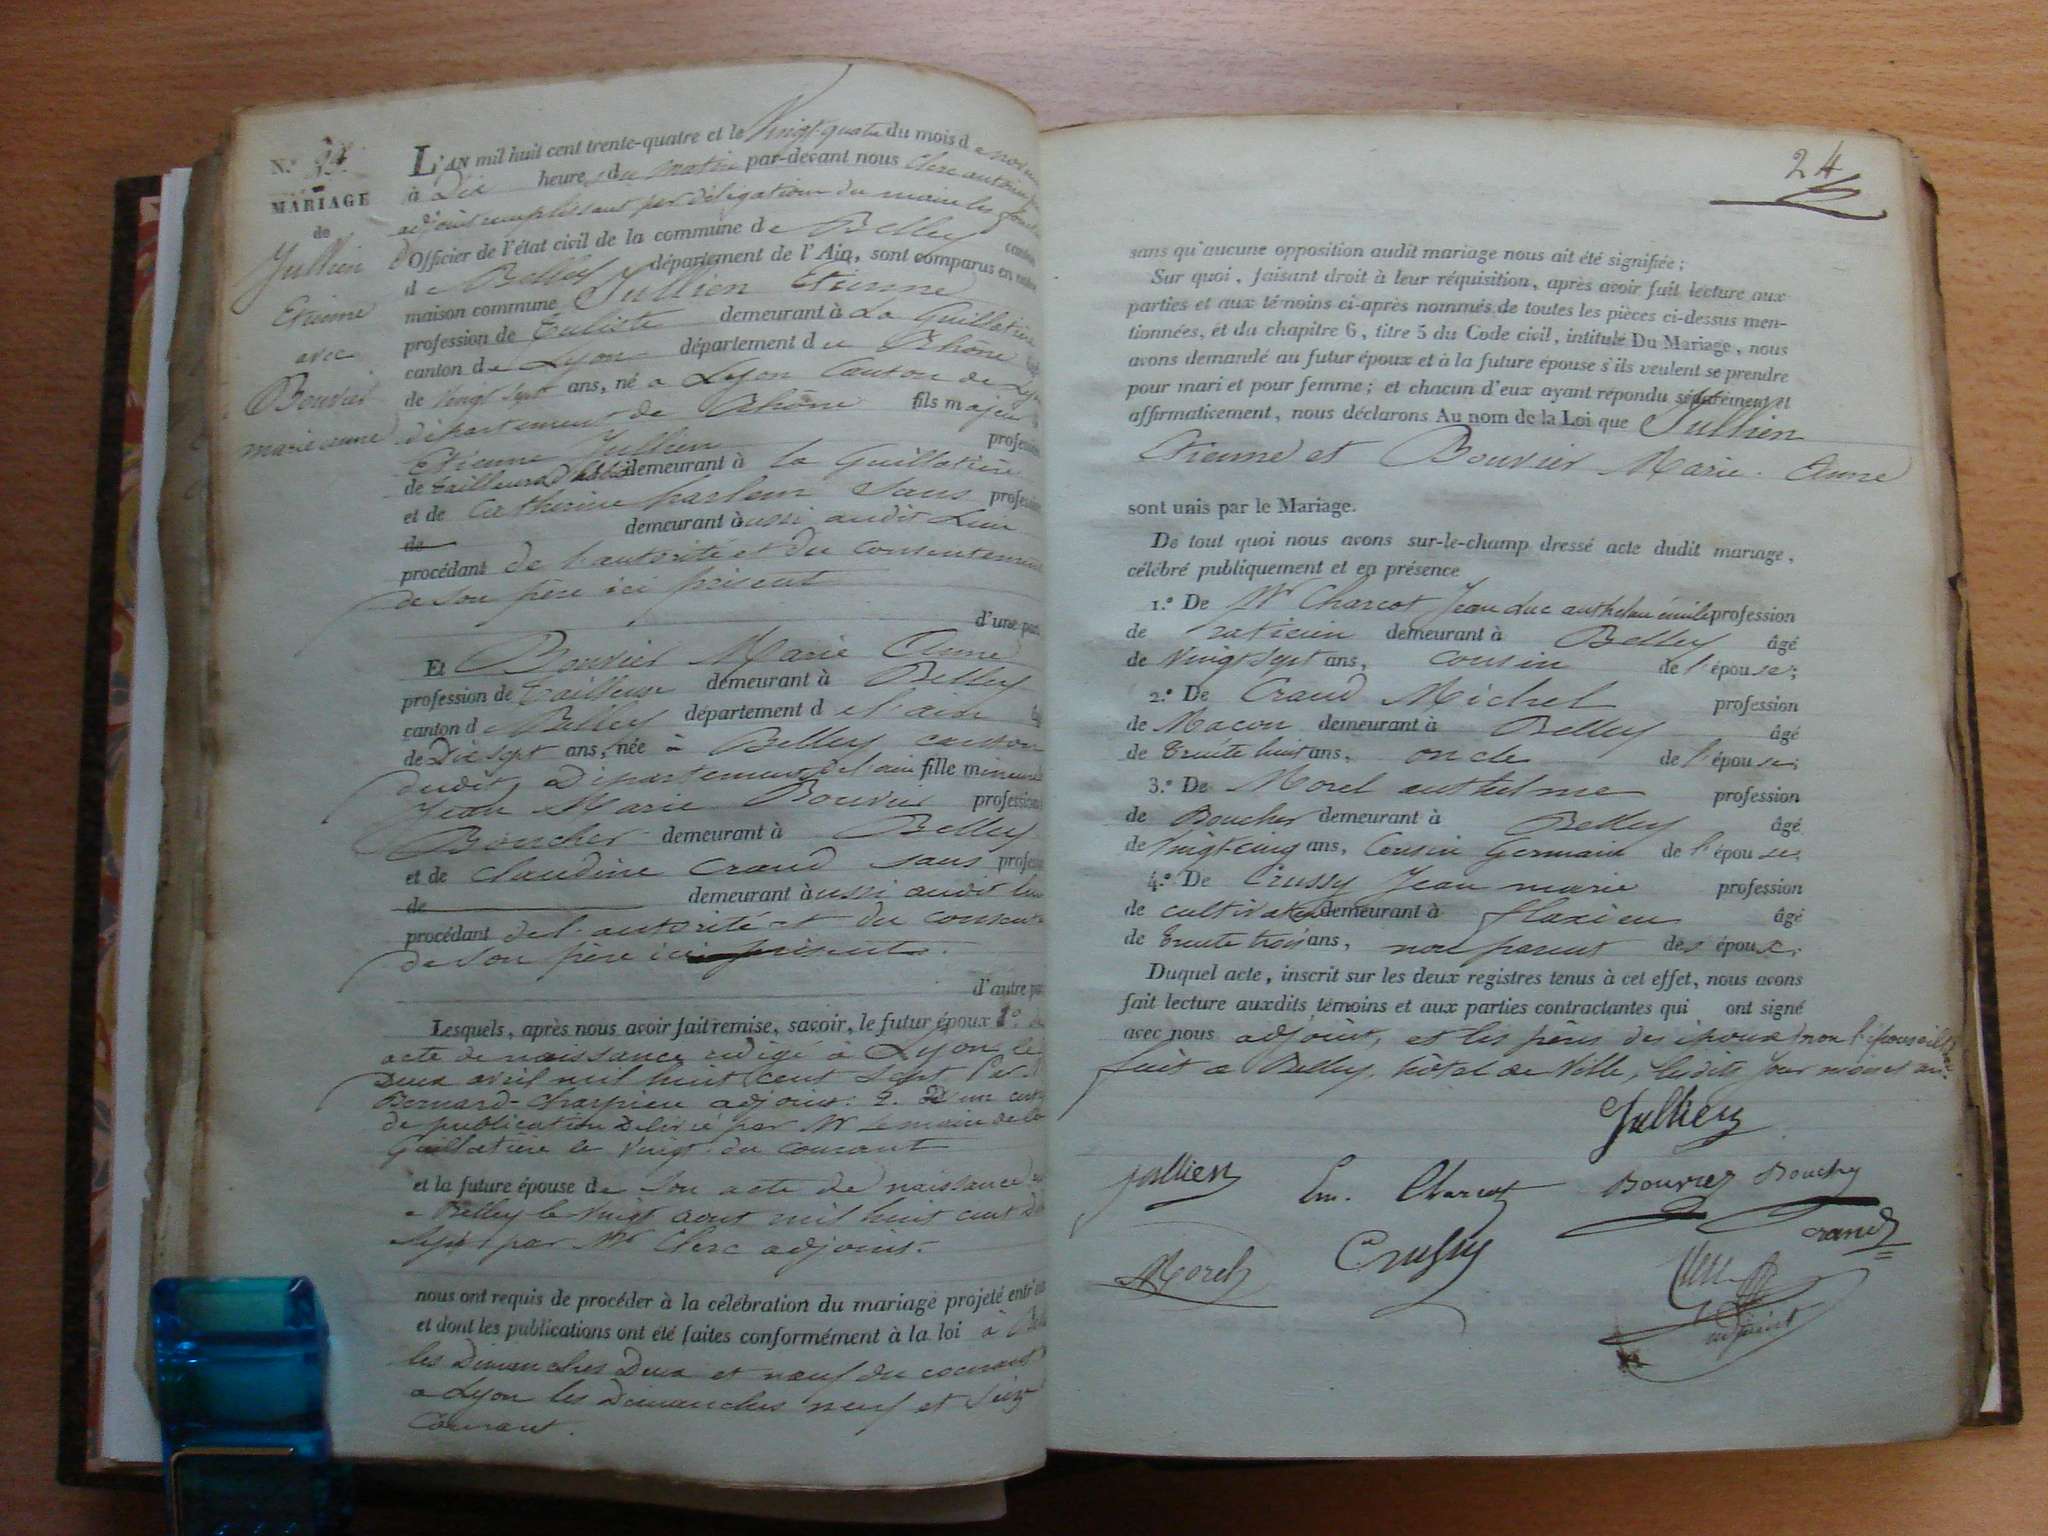 N.º
MARIAGE
de
Jullien
Etienne
avec
Bouvier
marie anne
L'AN mil huit cent trente-quatre et le Vingt quatre du mois de
à Dix heures du matin par-devant nous Clerc
adjoint remplissant par délégation du maire les
d'Officier de l'état civil de la commune de Belley canton
de Belley département de l'Ain, sont comparus en
maison commune Jullien Etienne
profession de Tuliste demeurant à La Guillotière
canton de Lyon département du Rhône
de Vingt sept ans, né à Lyon Canton de
département de Rhône fils majeur
Etienne Jullien profession
de tailleur d'habits demeurant à la Guillotière
et de Catherine sans profession
de demeurant aussi audit Lieu
procédant de l'autorité et du consentement
de son père ici présent
d'une part
Et Bouvier Marie Anne
profession de Tailleuse demeurant à Belley
canton de Belley département de l'ain
de Dix sept ans, née à Belley canton
dudit, Département de l'ain fille mineure
Jean Marie Bouvier profession
Boucher demeurant à Belley
et de Claudine Craud sans
de demeurant aussi audit lieu
procédant de l'autorité et du
de son père ici présent.
d'autre
Lesquels, après nous avoir fait remise, savoir, le futur époux 1º
acte de naissance redigé à Lyon le
Deux avril mil huit cent sept
Bernard-Charpieu adjoint. 2.
de publication Delivré par Mr le maire de la
Guillotière le Vingt du courant
et la future épouse de son acte de naissance
à Belley le Vingt aout mil huit cent
sept par Mr Clerc adjoint.
nous ont requis de procéder à la célébration du mariage projeté
et dont les publications ont été faites conformément à la loi à
les Dimanches Deux et neuf du courant
a Lyon les Dimanches neuf et
Courant.
24
sans qu'aucune opposition audit mariage nous ait été signifiée ;
Sur quoi, faisant droit à leur réquisition, après avoir fait lecture aux
parties et aux témoins ci-après nommés de toutes les pièces ci-dessus men-
tionnées, et du chapitre 6, titre 5 du Code civil, intitulé Du Mariage, nous
avons demandé au futur époux et à la future épouse s'ils veulent se prendre
pour mari et pour femme ; et chacun d'eux ayant répondu séparément et
affirmativement, nous déclarons Au nom de la Loi que Jullien
Etienne et Bouvier Marie-Anne
sont unis par le Mariage.
De tout quoi nous avons sur-le-champ dressé acte dudit mariage,
célébré publiquement et en présence
1.º De Mr Charcot Jean Luc anthelme émile profession
de praticien demeurant à Belley âgé
de Vingt Sept ans, cousin de l'épouse;
2.º De Craud Michel profession
de Macon demeurant à Belley âgé
de Trente huit ans, oncle de l'épouse;
3.º De Morel anthelme profession
de Boucher demeurant à Belley âgé
de Vingt-cinq ans, Cousin Germain de l'épouse;
4.º De Crussy Jean marie profession
de cultivateur demeurant à flaxieu âgé
de Trente trois ans, non parent des époux.
Duquel acte, inscrit sur les deux registres tenus à cet effet, nous avons
fait lecture auxdits témoins et aux parties contractantes qui ont signé
avec nous adjoint, et les pères des époux non l'épouse
fait à Belley, hôtel de Ville, lesdits jour mois et an.
Jullien
Jullien Em. Charcot Bouvier Boucher
Morel Crussy Craud
Clerc
adjoint